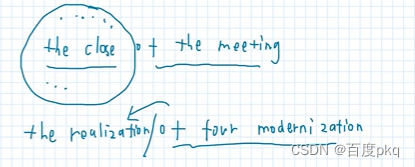 the close of the meeting
the realization / of four modernization
CSDN @百度pkq